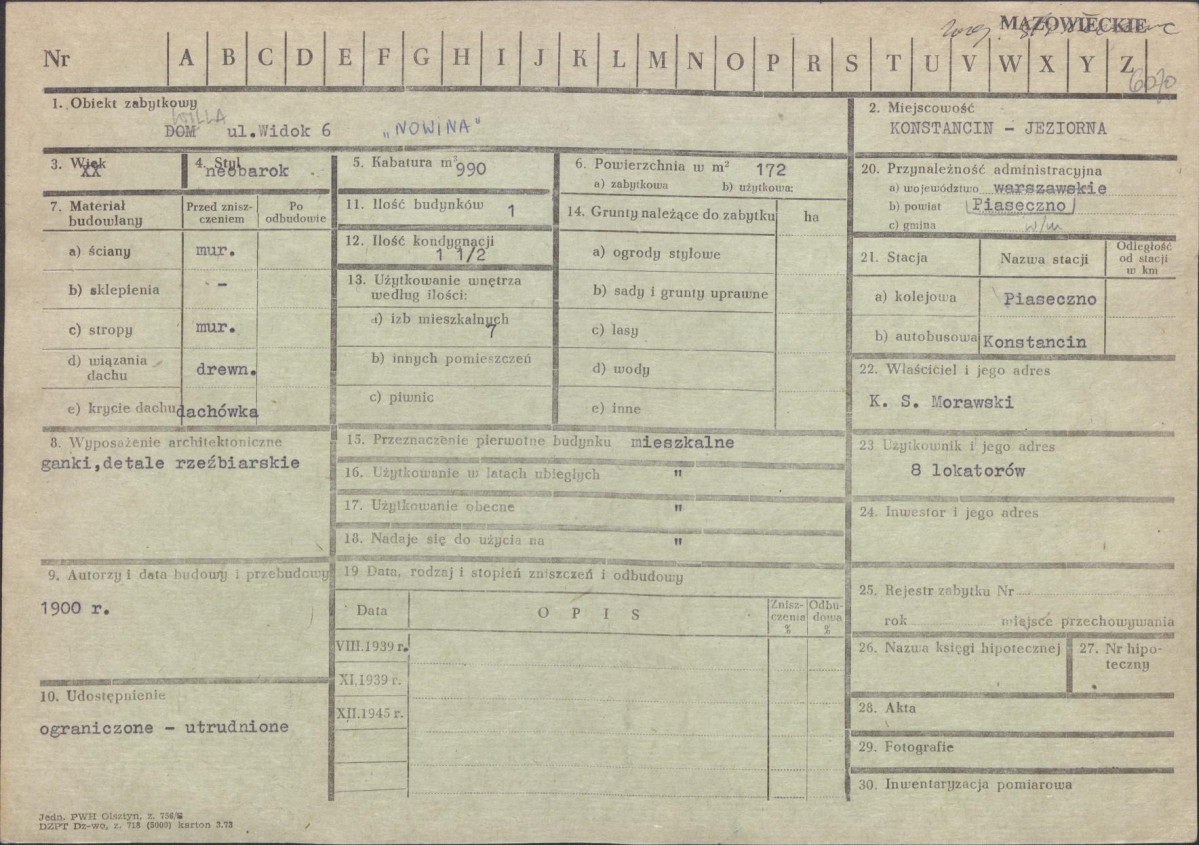 MAZOWIECKIE
Nr A B C D E F G H I J K L M N O P R S T U V W X Y Z
1. Obiekt zabytkowy
WILLA
DOM ul.Widok 6 „NOWINA"
2. Miejscowość
KONSTANCIN - JEZIORNA
3. Wiek
XX
4. Styl
neobarok
5. Kabatura m³
990
6. Powierzchnia w m² 172
a) zabytkowa b) użytkowa:
7. Materiał budowlany
Przed znisz-
czeniem
Po
odbudowie
a) ściany mur.
b) sklepienia -
c) stropy mur.
d) wiązania
dachu drewn.
e) krycie dachu dachówka
8. Wyposażenie architektoniczne
ganki,detale rzeźbiarskie
9. Autorzy i data budowy i przebudowy
1900 r.
10. Udostępnienie
ograniczone - utrudnione
11. Ilość budynków 1
12. Ilość kondygnacji
1 1/2
13. Użytkowanie wnętrza
według ilości:
a) izb mieszkalnych
7
b) innych pomieszczeń
c) piwnic
14. Grunty należące do zabytku ha
a) ogrody stylowe
b) sady i grunty uprawne
c) lasy
d) wody
e) inne
15. Przeznaczenie pierwotne budynku mieszkalne
16. Użytkowanie w latach ubiegłych "
17. Użytkowanie obecne "
18. Nadaje się do użycia na "
19 Data, rodzaj i stopień zniszczeń i odbudowy
Data OPIS
Znisz-
czenia
%
Odbu-
dowa
%
VIII.1939 r.
XI.1939 r.
XII.1945 r.
20. Przynależność administracyjna
a) województwo warszawskie
b) powiat Piaseczno
c) gmina w/m
21. Stacja Nazwa stacji
Odległość
od stacji
w km
a) kolejowa Piaseczno
b) autobusowa Konstancin
22. Właściciel i jego adres
K. S. Morawski
23 Użytkownik i jego adres
8 lokatorów
24. Inwestor i jego adres
25. Rejestr zabytku Nr
rok miejsce przechowywania
26. Nazwa księgi hipotecznej
27. Nr hipo-
teczny
28. Akta
29. Fotografie
30. Inwentaryzacja pomiarowa
Jedn. PWH Olsztyn, z. 736/S
DZPT Dz-wo, z. 718 (5000) karton 3.73